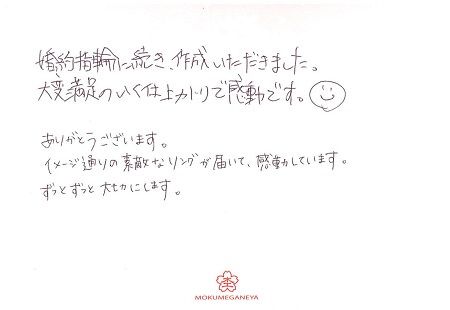 婚約指輪に続き、作成いただきました。
大変満足のいく仕上がりで感動です。
ありがとうございます。
イメージ通りの素敵なリングが届いて、感動しています。
ずっとずっと大切にします。
杢
MOKUMEGANEYA